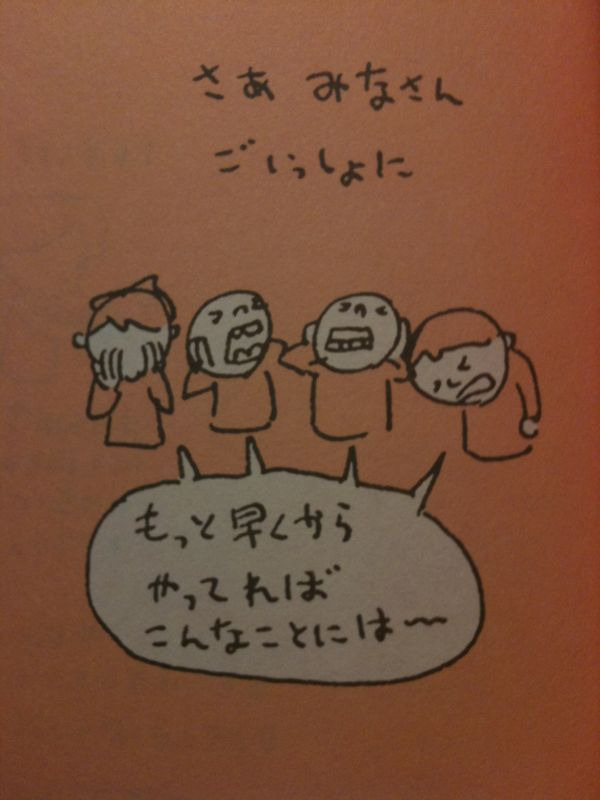 さあ みなさん
ごいっしょに
もっと早くから
やってれば
こんなことには〜